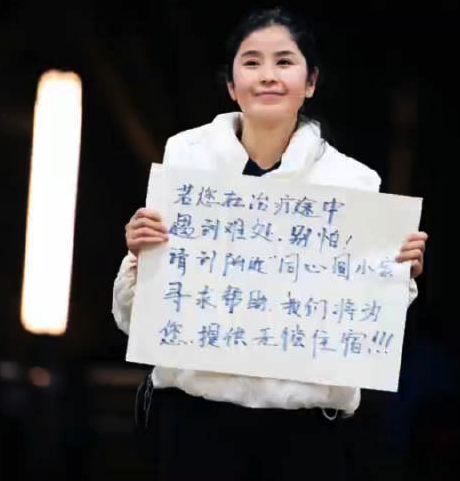 若您在治疗途中
遇到难处,别怕!
请到附近"同心圆小家
寻求帮助,我们将为
您.提供无偿住宿!!!